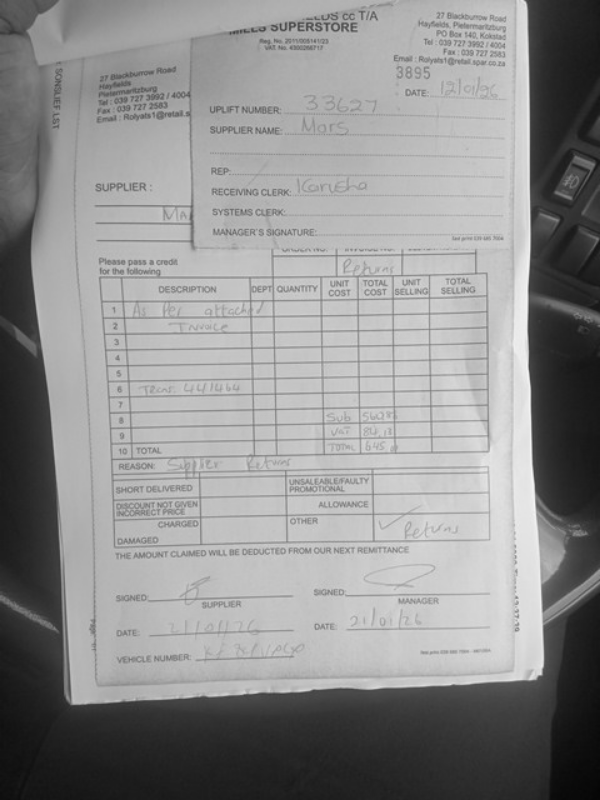 cc T/A
MILLS SUPERSTORE
Reg. No. 2011/005141/23
VAT No. 4300256717
27 Blackburrow Road
Hayfields, Pietermaritzburg
PO Box 140, Kokstad
Tel : 039 727 3992 / 4004
Fax : 039 727 2583
Email : Rolyats1@retail.spar.co.za
3895
DATE: 12/01/26
UPLIFT NUMBER: 33627
SUPPLIER NAME: Mars
REP:
RECEIVING CLERK: Karusha
SYSTEMS CLERK:
MANAGER'S SIGNATURE:
SONSLIEF LST
27 Blackburrow Road
Hayfields
Pietermaritzburg
Tel : 039 727 3992 / 4004
Fax : 039 727 2583
Email : Rolyats1@retail.s
SUPPLIER :
MA
Please pass a credit
for the following
Returns
DESCRIPTION DEPT QUANTITY UNIT COST TOTAL COST UNIT SELLING TOTAL SELLING
1 As Per attached
2 Invoice
3
4
5
6 Trans. 441464
7
8 Sub
9 VAT
10 TOTAL TOTAL
REASON: Supplier Returns
SHORT DELIVERED
UNSALEABLE/FAULTY
PROMOTIONAL
DISCOUNT NOT GIVEN
ALLOWANCE
INCORRECT PRICE
CHARGED
OTHER Returns
DAMAGED
THE AMOUNT CLAIMED WILL BE DEDUCTED FROM OUR NEXT REMITTANCE
SIGNED: SUPPLIER
SIGNED: MANAGER
DATE: 21/01/26
DATE: 21/01/26
VEHICLE NUMBER: